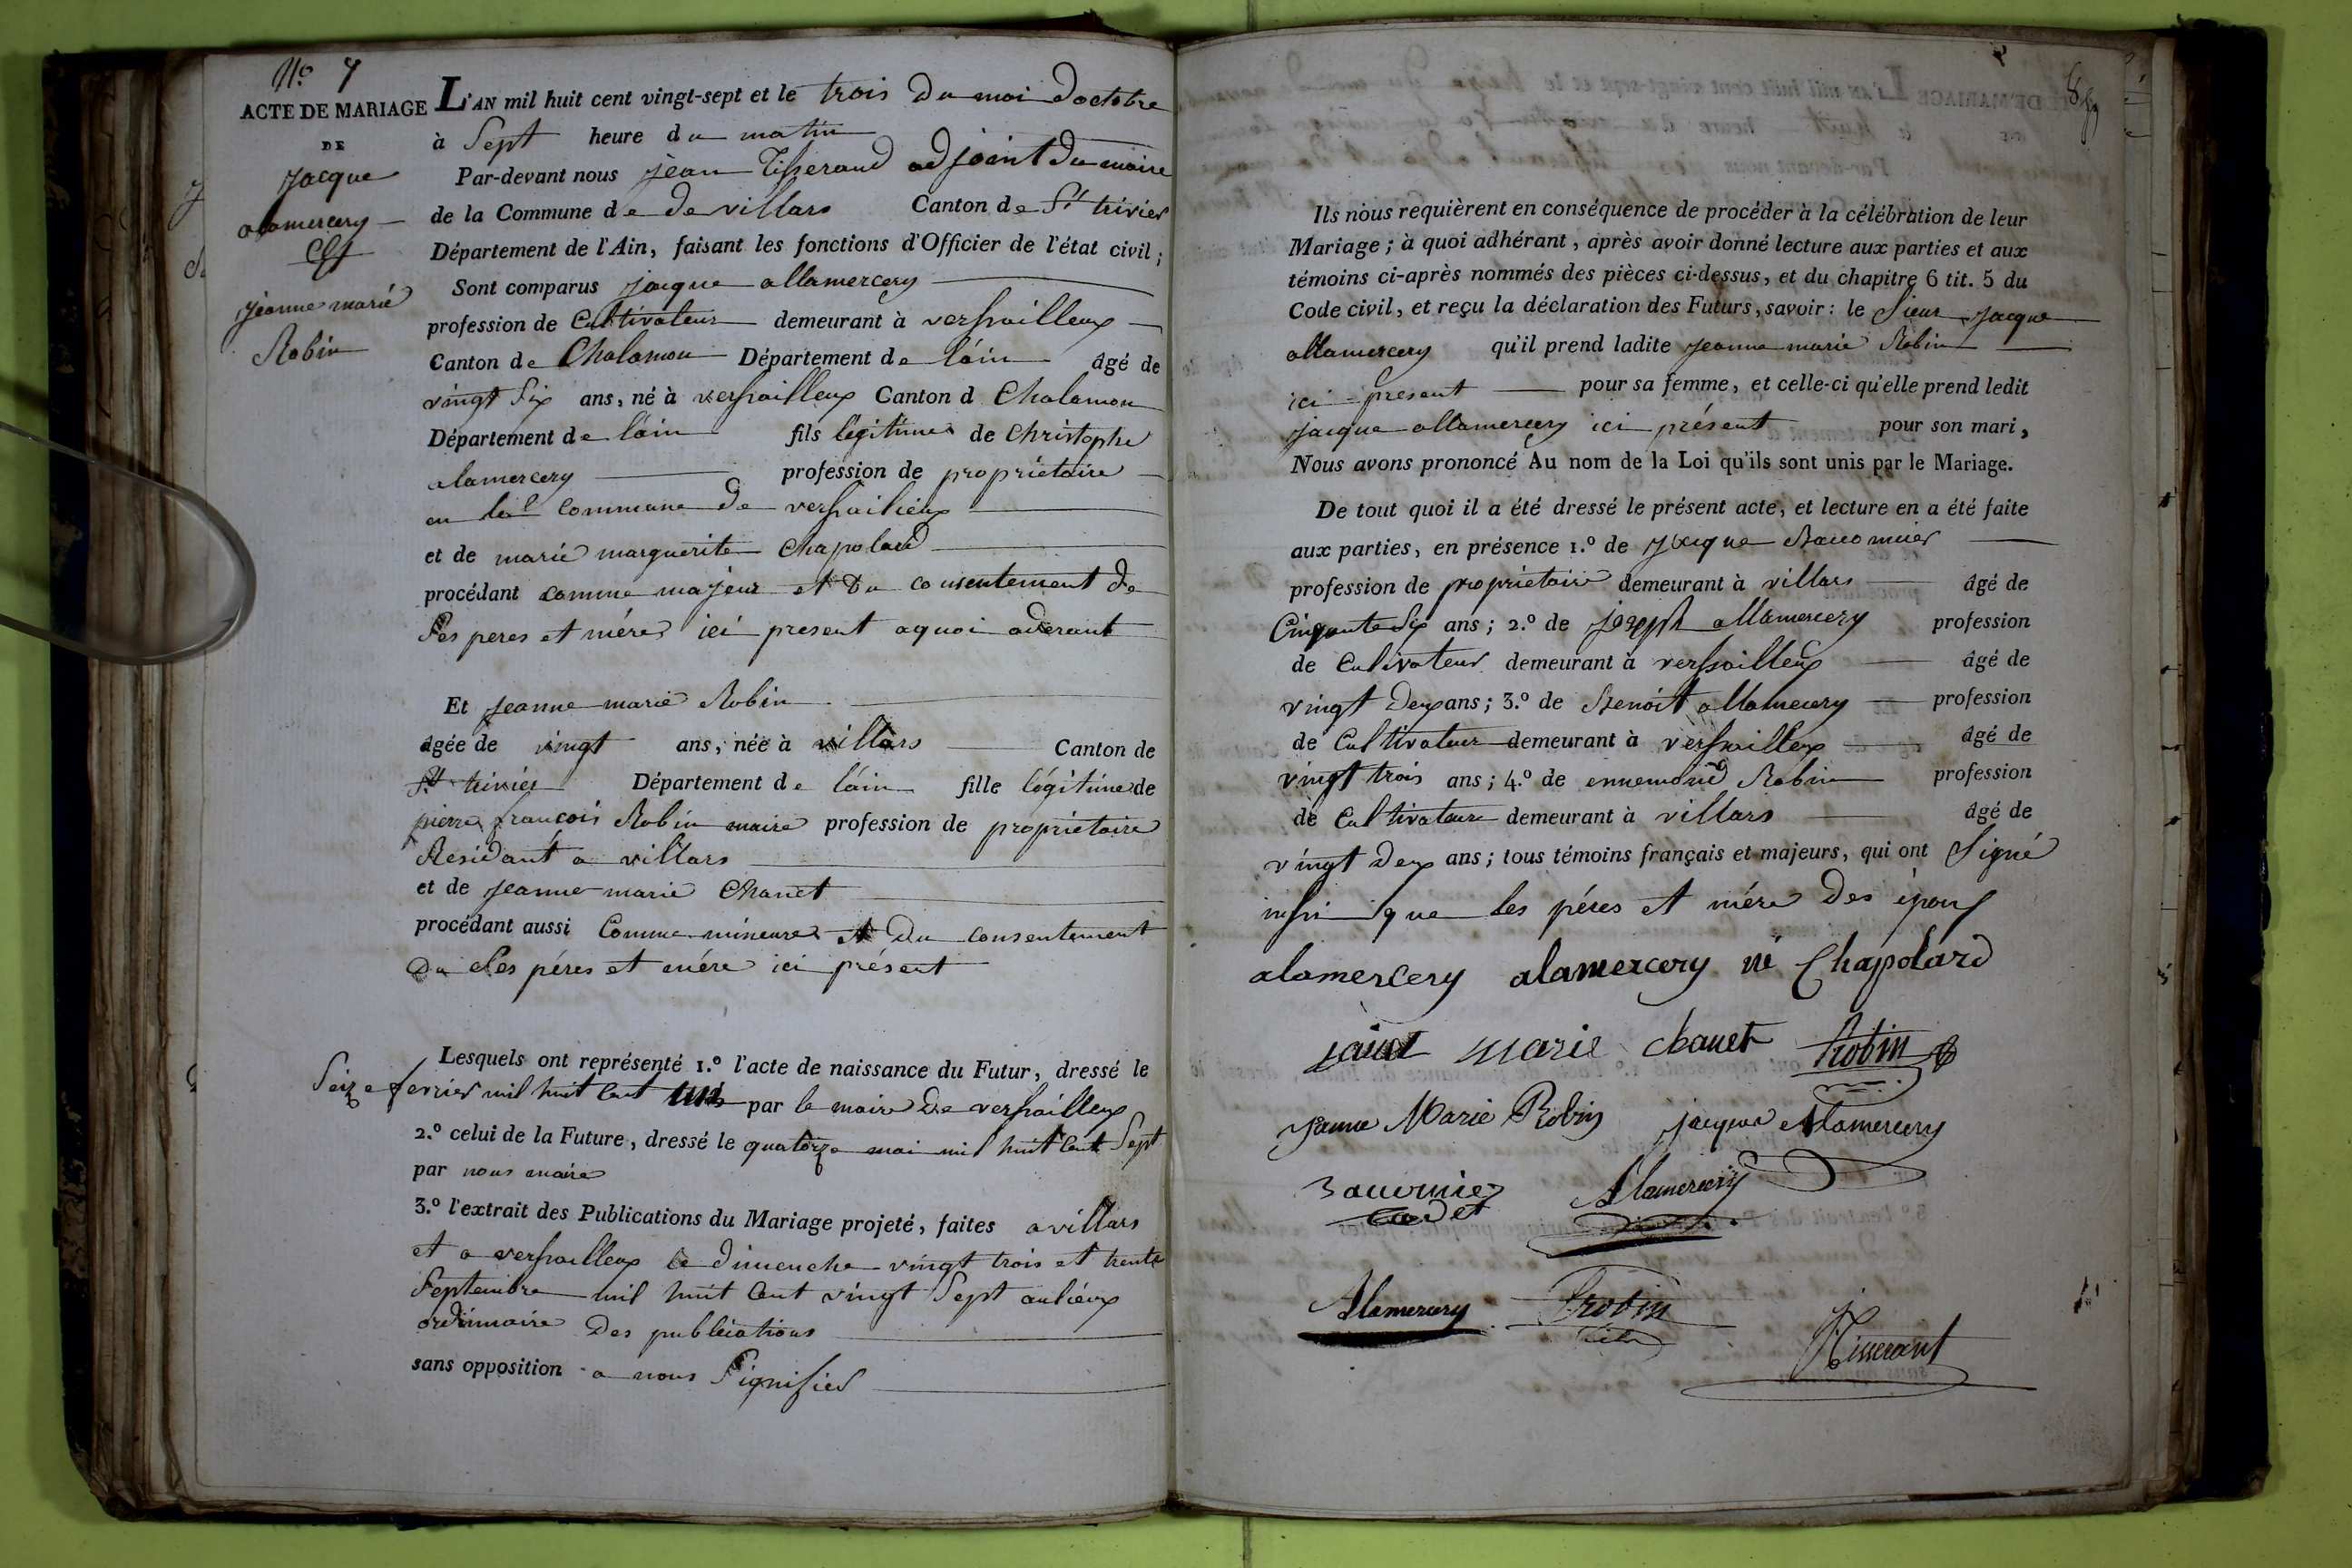 N.º 7
ACTE DE MARIAGE
DE
jacque
alamercery
Et
jeanne marie
Robin
L'AN mil huit cent vingt-sept et le trois du moi doctobre
à Sept heure du matin
Par-devant nous jean Tisserand adjoint du maire
de la Commune de de villars Canton de St trivier
Département de l'Ain, faisant les fonctions d'Officier de l'état civil;
Sont comparus jacque allamercery
profession de Cultivateur demeurant à versailleux
Canton de Chalamon Département de láin âgé de
vingt Six ans, né à versailleux Canton d Chalamon
Département de láin fils légitime de Christophe
alamercery profession de proprietaire
en la commune de versailleux
et de marie marguerite Chapolard
procédant comme majeur et du consentement de
Ses peres et mére ici present aquoi aderant
Et jeanne marie Robin
âgée de vingt ans, née à villars Canton de
St trivier Département de láin fille légitime de
pierre francois Robin maire profession de proprietaire
Residant a villars
et de jeanne marie Chanet
procédant aussi Comme mineure et du consentement
du Ses péres et mére ici présent
Lesquels ont représenté 1.º l'acte de naissance du Futur, dressé le
Seize fevrier mil huit Cent un par le maire de versailleux
2.º celui de la Future, dressé le quatorze mai mil huit Cent Sept
par nous maire
3.º l'extrait des Publications du Mariage projeté, faites a villars
et a versailleux le dimenche vingt trois et trente
Septembre mil huit Cent vingt Sept aulieux
ordinnaire des publications
sans opposition a nous Signifier
Ils nous requièrent en conséquence de procéder à la célébration de leur
Mariage; à quoi adhérant, après avoir donné lecture aux parties et aux
témoins ci-après nommés des pièces ci-dessus, et du chapitre 6 tit. 5 du
Code civil, et reçu la déclaration des Futurs, savoir: le Sieur jacque
allamercery qu'il prend ladite jeanne marie Robin
ici present pour sa femme, et celle-ci qu'elle prend ledit
jacque allamercery ici présent pour son mari,
Nous avons prononcé Au nom de la Loi qu'ils sont unis par le Mariage.
De tout quoi il a été dressé le présent acte, et lecture en a été faite
aux parties, en présence 1.º de jacque
profession de proprietaire demeurant à villars âgé de
Cinquante Six ans; 2.º de joseph allamercery profession
de Cultivateur demeurant à versailleux âgé de
vingt deux ans; 3.º de Benoit allamercery profession
de Cultivateur demeurant à versailleux âgé de
vingt trois ans; 4.º de ennemond Robin profession
de Cultivateur demeurant à villars âgé de
vingt deux ans; tous témoins français et majeurs, qui ont Signé
insi que les péres et mére des époux
alamercery alamercery né Chapolard
marie chanet Robin
janne Marie Robin jacque Alamercery
cadet Alamercery
Alamercery Robin
Tisserant